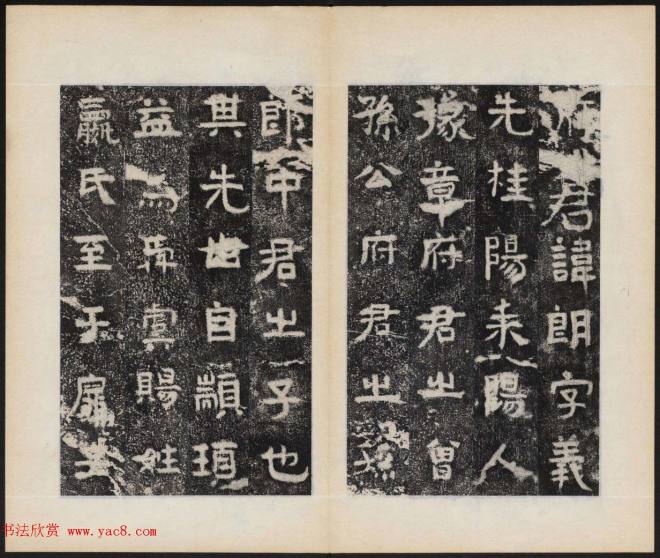 府君諱朗字義
先桂陽耒陽人
豫章府君之曾
孫公府君之
郎中君之子也
其先出自顓頊
益為虞賜姓
嬴氏至于
书法欣赏 www.yac8.com